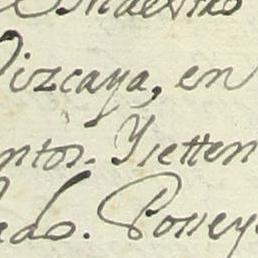 Maestro
Vizcaya, en
ntos. Y setten
do. Possey